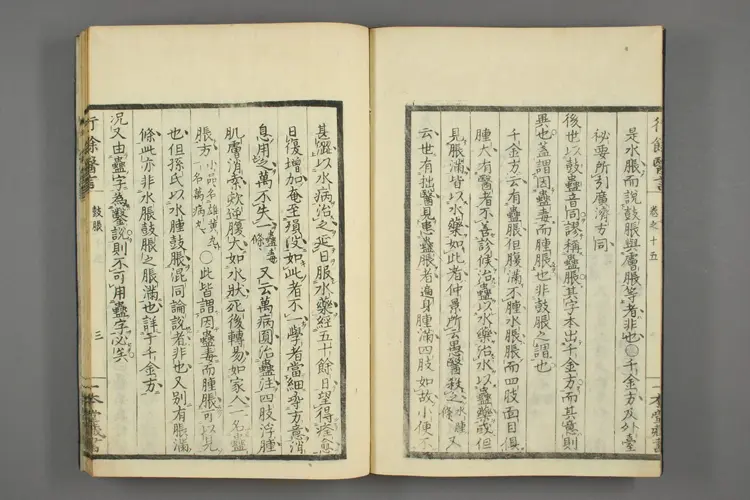 行餘醫言
卷之十五
是水脹而説鼓脹與膚脹等者非也○千金方及外臺
秘要所引廣濟方同
後世以鼓蠱音同謬稱蠱脹其字本出千金方而其意則
異也蓋謂因蠱毒而腫脹也非鼓脹之謂也
千金方云有蠱脹但腹滿不腫水脹脹而四肢面目俱
腫大有醫者不善診候治蠱以水藥治水以蠱藥或但
見脹滿皆以水藥如此者仲景所云愚醫殺之水腫
又
云世有拙醫見患蠱脹者遍身腫滿四肢如故小便不
一本堂藏書
甚澀以水病治之延日服水藥經五十餘日望得痊愈
日復增加奄至殞歿如此者不一學者當細尋方意消
息用之萬不失一蠱毒條
又云萬病圓治蠱注四肢浮腫
肌膚消索欬逆腹大如水狀死後轉易如家人一名蠱
脹方小品名雄黄丸一名萬病丸
○此皆謂因蠱毒而腫脹可以見
也但孫氏以水腫鼓脹混同論説者非也又別有脹滿
條此亦非水脹鼓脹之脹滿也詳于千金方
况又由蠱字為鑿説則不可用蠱字必矣
行餘醫言
鼓脹
三
一本堂藏書